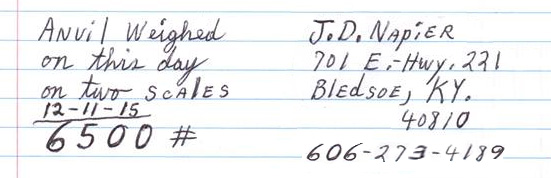 Anvil Weighed
on this day
on two scales
12-11-15
6500 #
J.D. Napier
701 E.-Hwy. 221
Bledsoe, KY.
40810
606-273-4189